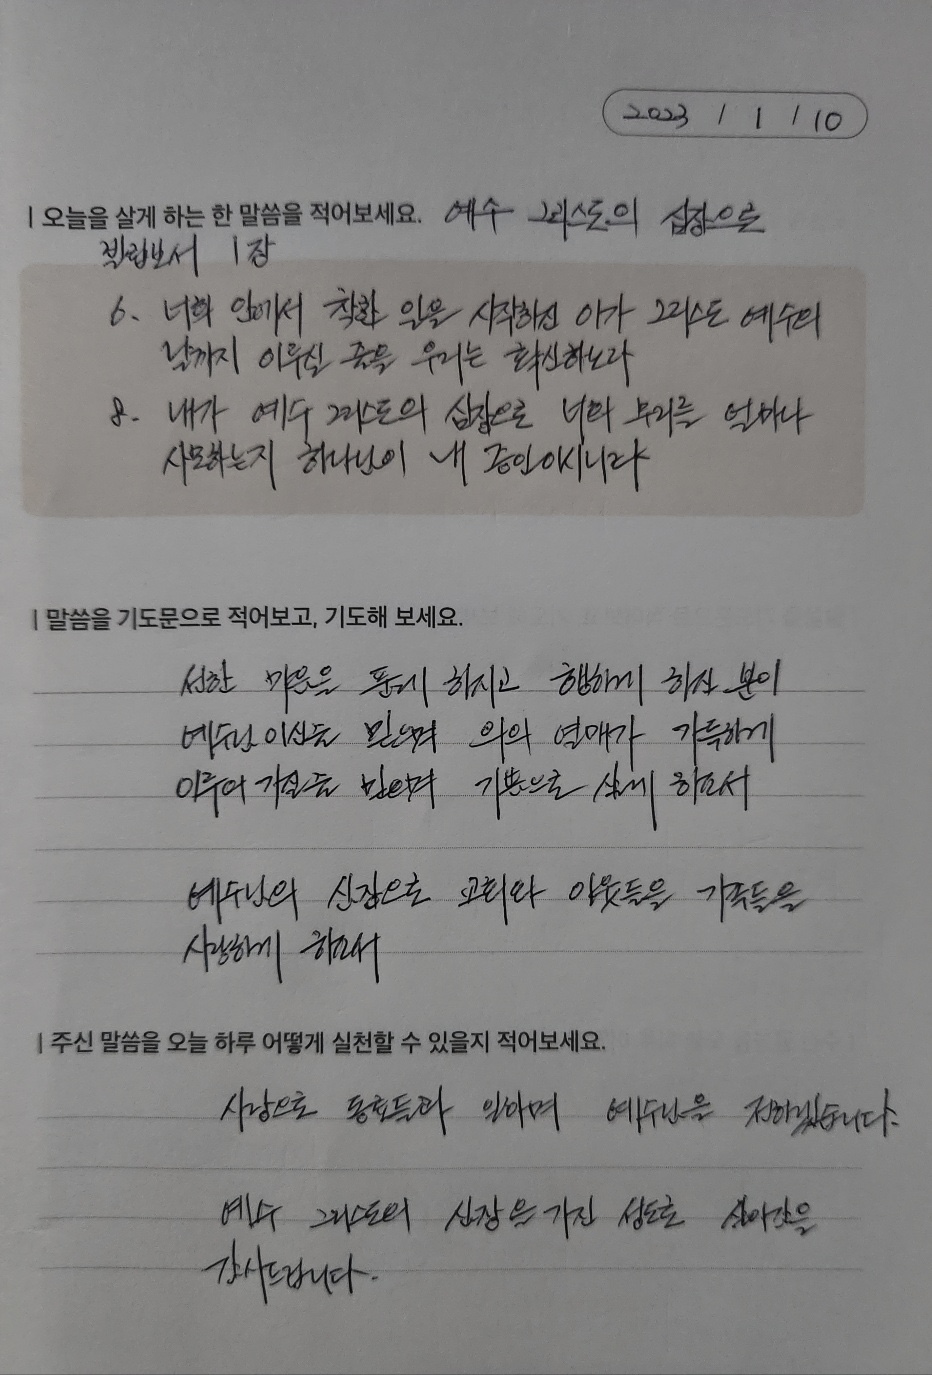 2023 / 1 / 10
| 오늘을 살게 하는 한 말씀을 적어보세요. 예수 그리스도의 심장으로
빌립보서 1장
6. 너희 안에서 착한 일을 시작하신 이가 그리스도 예수의
날까지 이루실 줄을 우리는 확신하노라
8. 내가 예수 그리스도의 심장으로 너희 무리를 얼마나
사모하는지 하나님이 내 증인이시니라
| 말씀을 기도문으로 적어보고, 기도해 보세요.
선한 마음을 품게 하시고 행하게 하신 분이
예수님이심을 믿으며 의의 열매가 가득하게
이루어 가심을 믿으며 기쁨으로 살게 하소서
예수님의 심장으로 교회와 이웃들을 가족들을
사랑하게 하소서
| 주신 말씀을 오늘 하루 어떻게 실천할 수 있을지 적어보세요.
사랑으로 동료들과 일하며 예수님을 전하겠습니다.
예수 그리스도의 심장을 가진 성도로 살아감을
감사드립니다.